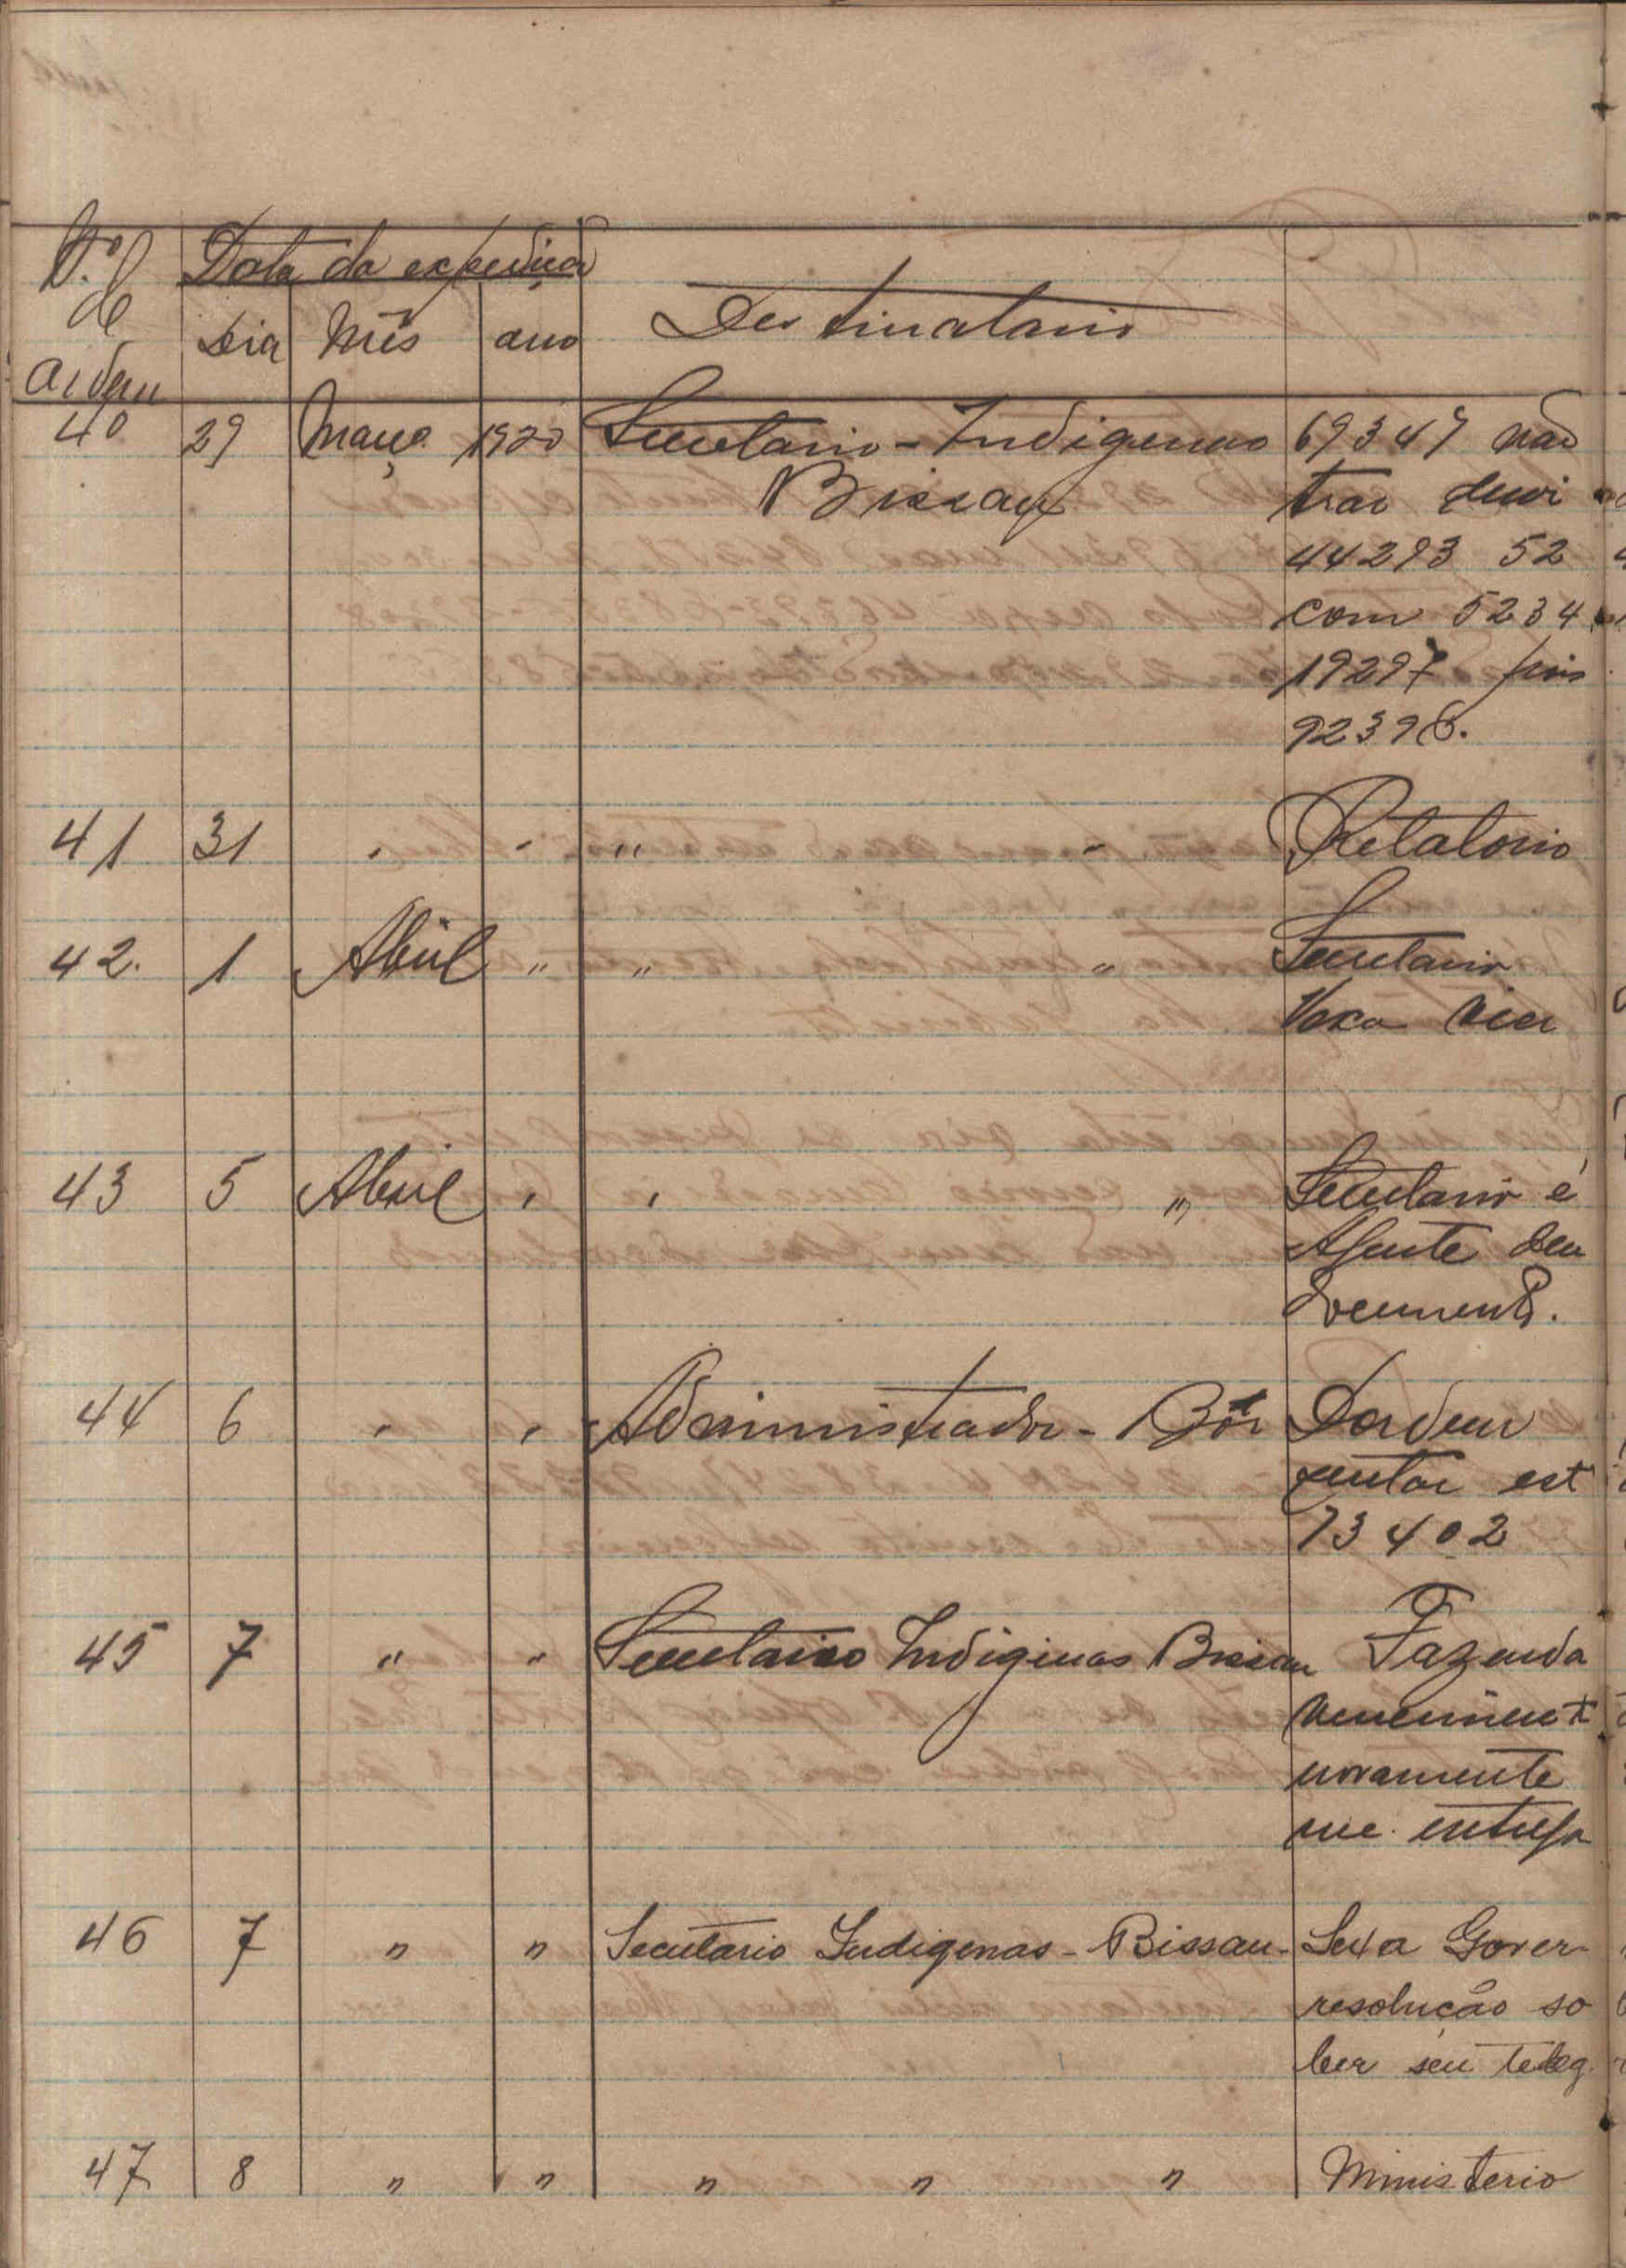 N.º Data da expedição
de
Dia Mês ano Destinatario
ordem
40 29 Março 1920 Secretario - Indigenas 69347 não
Bissau trar devi
44293 52
com 5234
19297 pois
92398.
41 31 " " " " Relatorio
42. 1 Abril " " " Secretario
Vexa
43 5 Abril " " " Secretario é
Agente deu
documentos.
44 6 " " Administrador - Bôr Dordem
juntar est
73402
45 7 " " Secretaiso Indiginas Bissau Fazenda
venciment
novamente
me. entrega
46 7 " " Secretario Indigenas - Bissau - Sexa Gover
resolução so
ber seu teleg.
47 8 " " " " " Ministerio